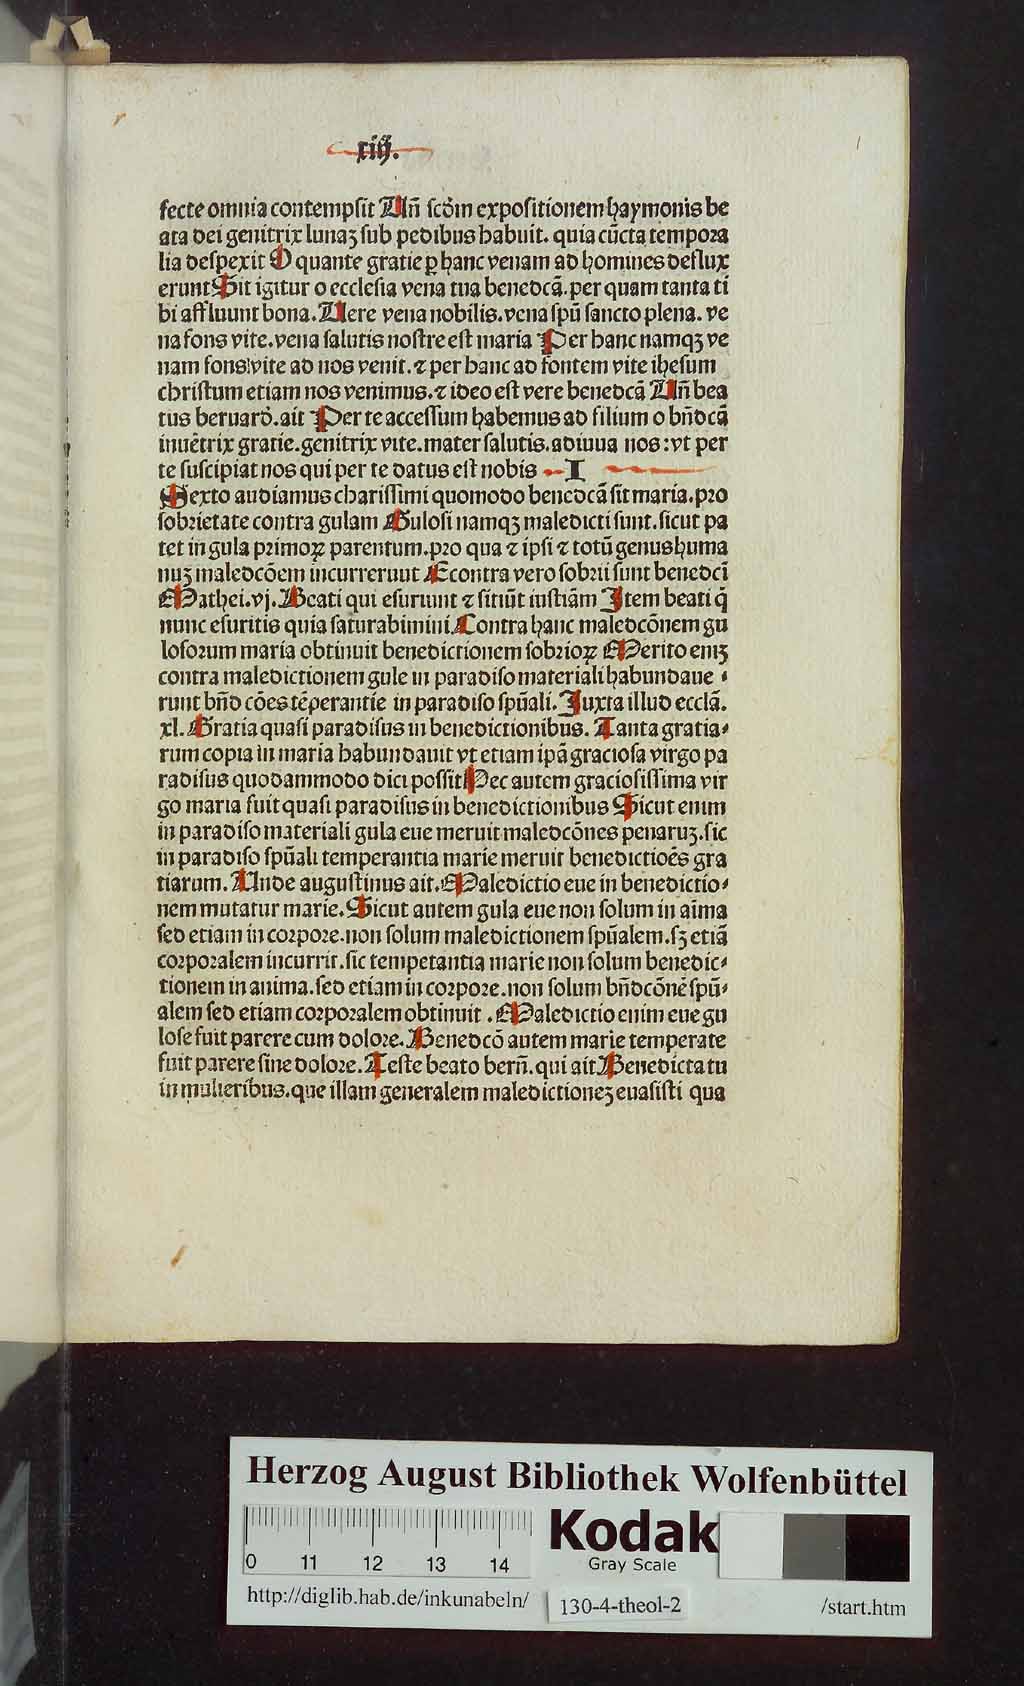 xiij.
fecte omnia contempsit Uñ scðm expositionem haymonis be
ata dei genitrix lunaꝫ sub pedibus habuit. quia cũcta tempora
lia despexit O quante gratie ꝑ hanc venam ad homines deflux
erunt Sit igitur o ecclesia vena tua benedcã. per quam tanta ti
bi affluunt bona. Uere vena nobilis. vena spũ sancto plena. ve
na fons vite. vena salutis nostre est maria Per hanc namqꝫ ve
nam fons vite ad nos venit. ⁊ per hanc ad fontem vite ihesum
christum etiam nos venimus. ⁊ ideo est vere benedcã Uñ bea
tus beruard̄. ait Per te accessum habemus ad filium o bñdcã
inuẽtrix gratie. genitrix vite. mater salutis. adiuua nos: vt per
te suscipiat nos qui per te datus est nobis I
Sexto audiamus charissimi quomodo benedcã sit maria. pro
sobrietate contra gulam Gulosi namqꝫ maledicti sunt. sicut pa
tet in gula primoꝝ parentum. pro qua ⁊ ipsi ⁊ totũ genus huma
nuꝫ maledcõem incurrerunt Econtra vero sobrii sunt benedcĩ
Mathei. vj. Beati qui esuriunt ⁊ sitiũt iustiãm Item beati q̃
nunc esuritis quia saturabimini Contra hanc maledcõnem gu
losorum maria obtinuit benedictionem sobrioꝝ Merito eniꝫ
contra maledictionem gule in paradiso materiali habundaue⸗
runt bñd cões tẽperantie in paradiso spũali. Iuxta illud ecclã.
xl. Gratia quasi paradisus in benedictionibus. Tanta gratia⸗
rum copia in maria habundauit vt etiam ipã graciosa virgo pa
radisus quodammodo dici possit Hec autem graciosissima vir
go maria fuit quasi paradisus in benedictionibus Sicut enim
in paradiso materiali gula eue meruit maledcões penaruꝫ. sic
in paradiso spũali temperantia marie meruit benedictioẽs gra
tiarum. Unde augustinus ait. Maledictio eue in benedictio⸗
nem mutatur marie. Sicut autem gula eue non solum in aĩma
sed etiam in corpore. non solum maledictionem spũalem. sꝫ etiã
corporalem incurrit. sic tempetantia marie non solum benedic⸗
tionem in anima. sed etiam in corpore. non solum bñdcõnẽ spũ⸗
alem sed etiam corporalem obtinuit. Maledictio enim eue gu
lose fuit parere cum dolore. Benedcõ autem marie temperate
fuit parere sine dolore. Teste beato berñ. qui ait Benedicta tu
in mulieribus. que illam generalem maledictioneꝫ euasisti qua
Herzog August Bibliothek Wolfenbüttel
0 11 12 13 14
Kodak
Gray Scale
http://diglib.hab.de/inkunabeln/ 130-4-theol-2 /start.htm